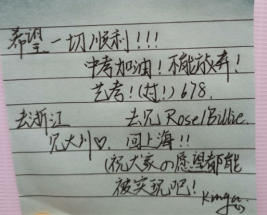 希望一切顺利!!!
中考加油!不能放弃!
艺考!(打!)678.
去浙江 去见Rose/Billie.
见大川♡. 回上海!!
(祝大家の愿望都能
被实现吧!